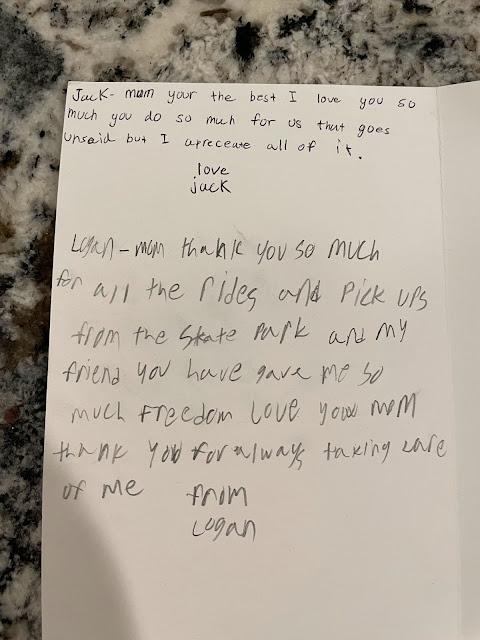 Jack- mom your the best I love you so
much you do so much for us that goes
unsaid but I apreceate all of it.
love
jack
Logan - mom thank you so much
for all the rides and Pick ups
from the skate park and my
friend you have gave me so
much Freedom Love you mom
thank you for always taking care
of me from
Logan